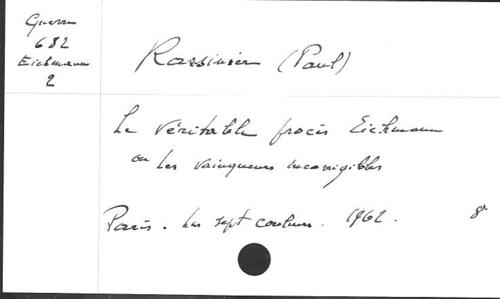 Guerre
682
Eichmann
2
Rassinier (Paul)
Le véritable procès Eichmann
ou les vainqueurs incorrigibles
Paris. Les sept couleurs. 1962. 8°